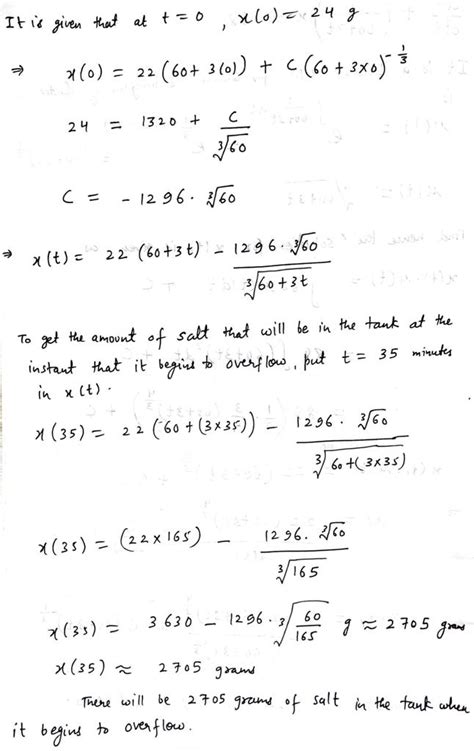 It is given that at t = 0 , x(0) = 24 g
⇒ x(0) = 22(60 + 3(0)) + C(60 + 3×0)^(-1/3)
24 = 1320 + C/∛60
C = -1296 · ∛60
⇒ x(t) = 22(60+3t) - (1296 · ∛60)/∛(60+3t)
To get the amount of salt that will be in the tank at the
instant that it begins to overflow, put t = 35 minutes
in x(t).
x(35) = 22(60 + (3×35)) - (1296 · ∛60)/∛(60+(3×35))
x(35) = (22×165) - (1296 · ∛60)/∛165
x(35) = 3630 - 1296 · ∛(60/165) g ≈ 2705 grams
x(35) ≈ 2705 grams
There will be 2705 grams of salt in the tank when
it begins to overflow.